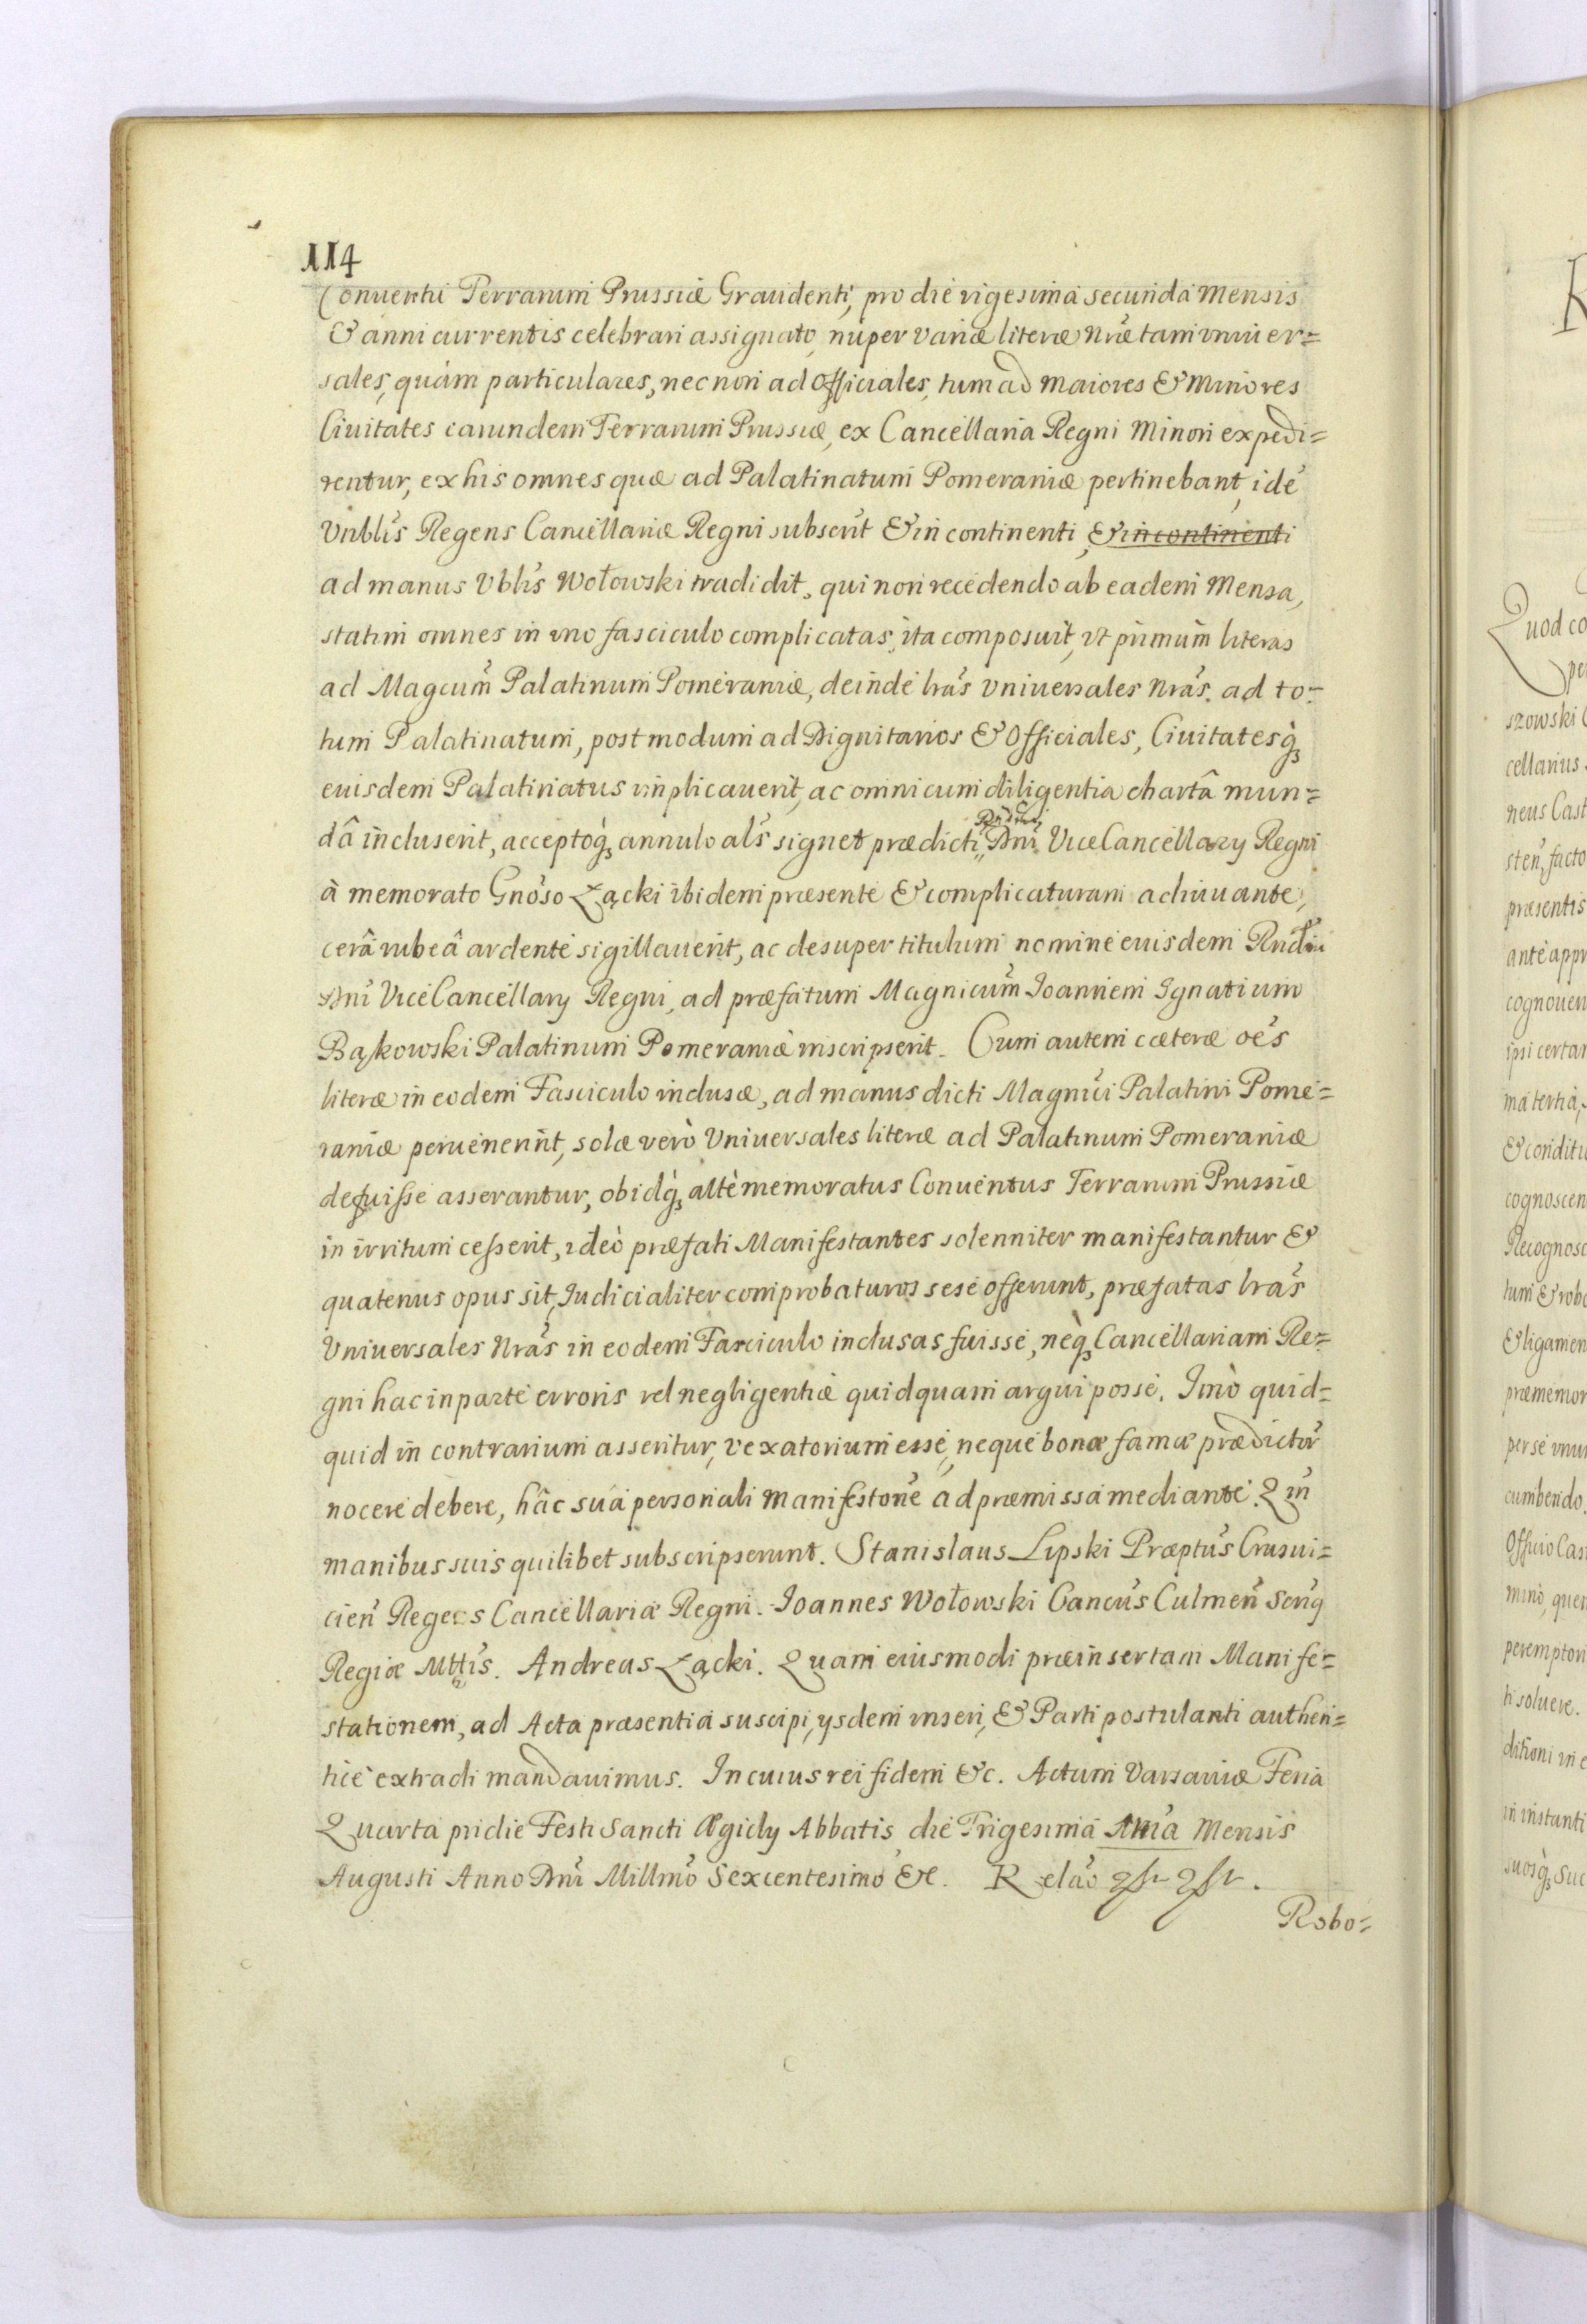 114
Conuentui Terrarum Prussiæ Graudenti, pro die vigesima secunda Mensis
& anni currentis celebrari assignato, nuper variæ literæ Nrae tam vniuer=
sales, quàm particulares, nec non ad Officiales, tum ad Maiores & Minores
Ciuitates earundem Terrarum Prussiæ, ex Cancellaria Regni Minori expedi=
rentur, ex his omnes quæ ad Palatinatum Pomeraniæ pertinebant, ide
Vnblis Regens Cancellariæ Regni subscrit & in continenti, & in continenti
ad manus Vblis Wołowski tradidit, qui non recedendo ab eadem Mensa,
statim omnes in vno fasciculo complicatas, ita composuit, vt primum literas
ad Magcum Palatinum Pomeraniæ, deinde lras Vniuersales Nras. ad to=
tum Palatinatum, post modum ad Dignitarios & Officiales, Ciuitatesq̀
euisdem Palatinatus implicauerit, ac omni cum diligentia chartâ mun=
dâ incluserit, acceptoq̀ annulo als signet prædicti Rndmi Dni ViceCancellary Regni
à memorato Gnoso Łącki ibidem præsente & complicaturam adiuuante,
cerâ rubeâ ardente sigillauerit, ac desuper titulum nomine euisdem Rndmi
Dni ViceCancellary Regni, ad præfatum Magnicum Joannem Ignatium
Bąkowski Palatinum Pomeraniæ inscripserit. Cum autem cæteræ oes
literæ in eodem Fasciculo inclusæ, ad manus dicti Magnici Palatini Pome=
raniæ peruenerint, solæ verò Vniuersales literæ ad Palatinum Pomeraniæ
defuisse asserantur, ob idq̀ altè memoratus Conuentus Terrarum Prussiæ
in irritum cesserit, ideò præfati Manifestantes solenniter manifestantur &
quatenus opus sit, Iudicialiter comprobaturos sese offerunt, præfatas lras
Vniuersales Nras in eodem Fasciculo inclusas fuisse, neq̀ Cancellariam Re=
gni hac in parte erroris vel negligentiæ quidquam argui posse. Imò quid=
quid in contrarium asseritur, vexatorium esse, neque bonæ famæ prædictor
nocere debere, hâc sua personali Manifestone ad præmissa mediante. Qui
manibus suis quilibet subscripserunt. Stanislaus Lipski Præptus Crusui=
cien Regens Cancellariæ Regni. Joannes Wołowski Cancus Culmen Scrius
Regiæ Mttis. Andreas Łącki. Quam eiusmodi præinsertam Manife=
stationem, ad Acta præsentia suscipi, ysdem inseri, & Parti postulanti authen=
ticè extradi mandauimus. In cuius rei fidem &c. Actum Varsauiæ Feria
Quarta pridie Festi Sancti Ægidy Abbatis die Trigesima Mensis
Augusti Anno Dni Millmo Sexcentesimo &c. Relao
Robo=